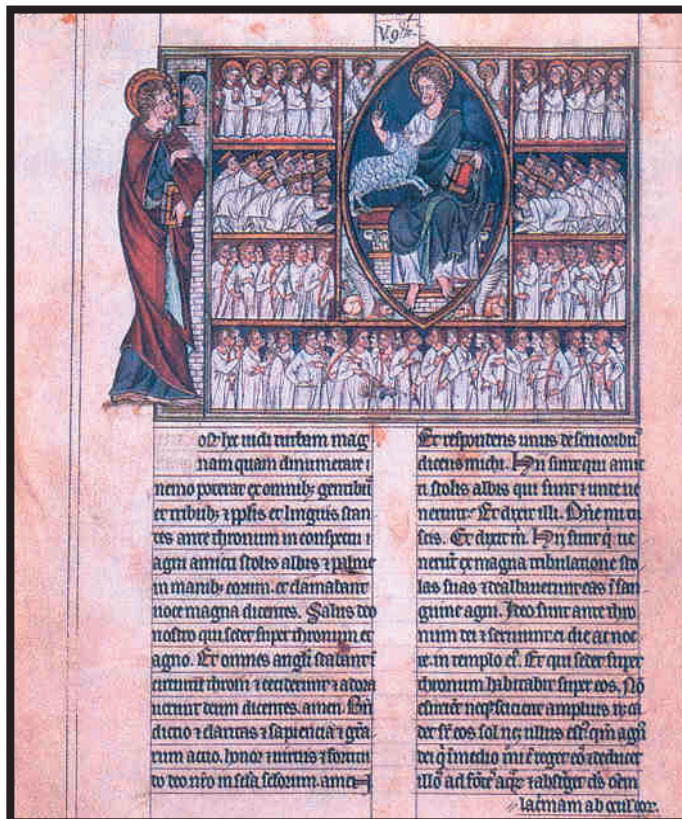 ost hec uidi turbam mag
nam quam dinumerare
nemo poterat ex omnibꝫ gentibꝰ
et tribubꝫ ⁊ pplis et linguis stan
tes ante thronum in conspectu
agni amicti stolis albis ⁊ palme
in manibꝫ eorum. et clamabant
uoce magna dicentes. Salus deo
nostro qui sedet super thronum et
agno. Et omnes angli stabant ī
circuitu throni ⁊ ceciderunt ⁊ adora
uerunt deum dicentes. amen. Bn̄
dictio ⁊ claritas ⁊ sapiencia ⁊ gr̄a
rum actio. honor ⁊ uirtus ⁊ fortitu
do deo nr̄o in scl̄a scl̄orum. amen
Et respondens unus de senioribꝰ
dicens michi. Hii sunt qui amic
ti stolis albis qui sunt ⁊ unde ue
nerunt. Et dixit illi. Dn̄e mi tu
scis. Et dixit m̄. Hii sunt q̄ ue
nerūt ex magna tribulatione sto
las suas ⁊ dealbauerunt eas ī san
guine agni. Ideo sunt ante thro
num dei ⁊ seruiunt ei die ac noc
te. in templo eiꝰ. Et qui sedet super
thronum habitabit super eos. Nō
esurient neqꝫ sitient amplius
sol ullus
dei
ad
lacrimam ab